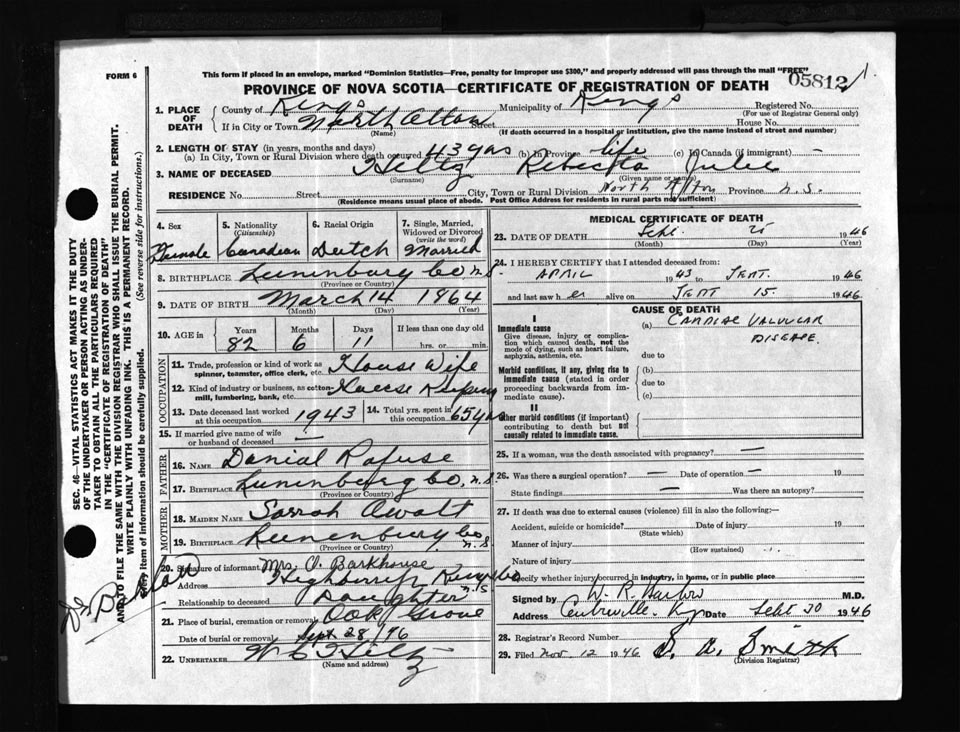 FORM 6
This form if placed in an envelope, marked "Dominion Statistics—Free, penalty for improper use $300," and properly addressed will pass through the mail "FREE"
05812
PROVINCE OF NOVA SCOTIA—CERTIFICATE OF REGISTRATION OF DEATH
1. PLACE OF DEATH
County of Kings Municipality of Kings Registered No.
(For use of Registrar General only)
If in City or Town North Alton Street House No.
(Name) (If death occurred in a hospital or institution, give the name instead of street and number)
2. LENGTH OF STAY (in years, months and days)
(a) In City, Town or Rural Division where death occurred 43 yrs (b) In Province life (c) In Canada (if immigrant) —
3. NAME OF DECEASED Hiltz Rebecca Julie
(Surname) (Given name or names)
RESIDENCE No. Street City, Town or Rural Division North Alton Province N.S.
(Residence means usual place of abode. Post Office Address for residents in rural parts not sufficient)
4. Sex 5. Nationality (Citizenship) 6. Racial Origin 7. Single, Married, Widowed or Divorced (write the word)
Female Canadian Dutch Married
8. BIRTHPLACE Lunenburg Co N.S.
(Province or Country)
9. DATE OF BIRTH March 14 1864
(Month) (Day) (Year)
10. AGE in Years Months Days If less than one day old
82 6 11 hrs. or min.
OCCUPATION
11. Trade, profession or kind of work as spinner, teamster, office clerk, etc. House Wife
12. Kind of industry or business, as cotton-mill, lumbering, bank, etc.
13. Date deceased last worked at this occupation 1943 14. Total yrs. spent in this occupation 65 yrs
15. If married give name of wife or husband of deceased —
FATHER
16. NAME Danial Rafuse
17. BIRTHPLACE Lunenburg Co, N.S.
(Province or Country)
MOTHER
18. MAIDEN NAME Sarrah Awalt
19. BIRTHPLACE Lunenburg Co N.S
(Province or Country)
20. Signature of informant Mrs. O. Barkhouse
Address Highbury Kings Co N.S
Relationship to deceased Daughter
21. Place of burial, cremation or removal Oak Grove
Date of burial or removal Sept 28/46
22. UNDERTAKER W C Hiltz
(Name and address)
MEDICAL CERTIFICATE OF DEATH
23. DATE OF DEATH Sept. 25 1946
(Month) (Day) (Year)
24. I HEREBY CERTIFY that I attended deceased from:
APRIL 1943 to SEPT. 1946
and last saw h er alive on SEPT 15 1946
CAUSE OF DEATH
I
Immediate cause
Give disease, injury or complication which caused death, not the mode of dying, such as heart failure, asphyxia, asthenia, etc.
(a) CARDIAC VALVULAR
DISEASE.
due to
Morbid conditions, if any, giving rise to immediate cause (stated in order proceeding backwards from immediate cause).
(b)
due to
(c)
II
Other morbid conditions (if important) contributing to death but not causally related to immediate cause.
25. If a woman, was the death associated with pregnancy? —
26. Was there a surgical operation? — Date of operation — 19
State findings — Was there an autopsy?
27. If death was due to external causes (violence) fill in also the following:—
Accident, suicide or homicide? Date of injury 19
(State which)
Manner of injury
(How sustained)
Nature of injury
Specify whether injury occurred in industry, in home, or in public place
Signed by M.D.
Address Centreville Date Sept 30 1946
28. Registrar's Record Number
29. Filed Nov. 12 1946 Smith
(Division Registrar)
SEC. 46—VITAL STATISTICS ACT MAKES IT THE DUTY
OF THE UNDERTAKER OR PERSON ACTING AS UNDER-
TAKER TO OBTAIN ALL THE PARTICULARS REQUIRED
IN THE "CERTIFICATE OF REGISTRATION OF DEATH"
AND TO FILE THE SAME WITH THE DIVISION REGISTRAR WHO SHALL ISSUE THE BURIAL PERMIT.
WRITE PLAINLY WITH UNFADING INK. THIS IS A PERMANENT RECORD.
Every item of information should be carefully supplied. (See reverse side for instructions.)